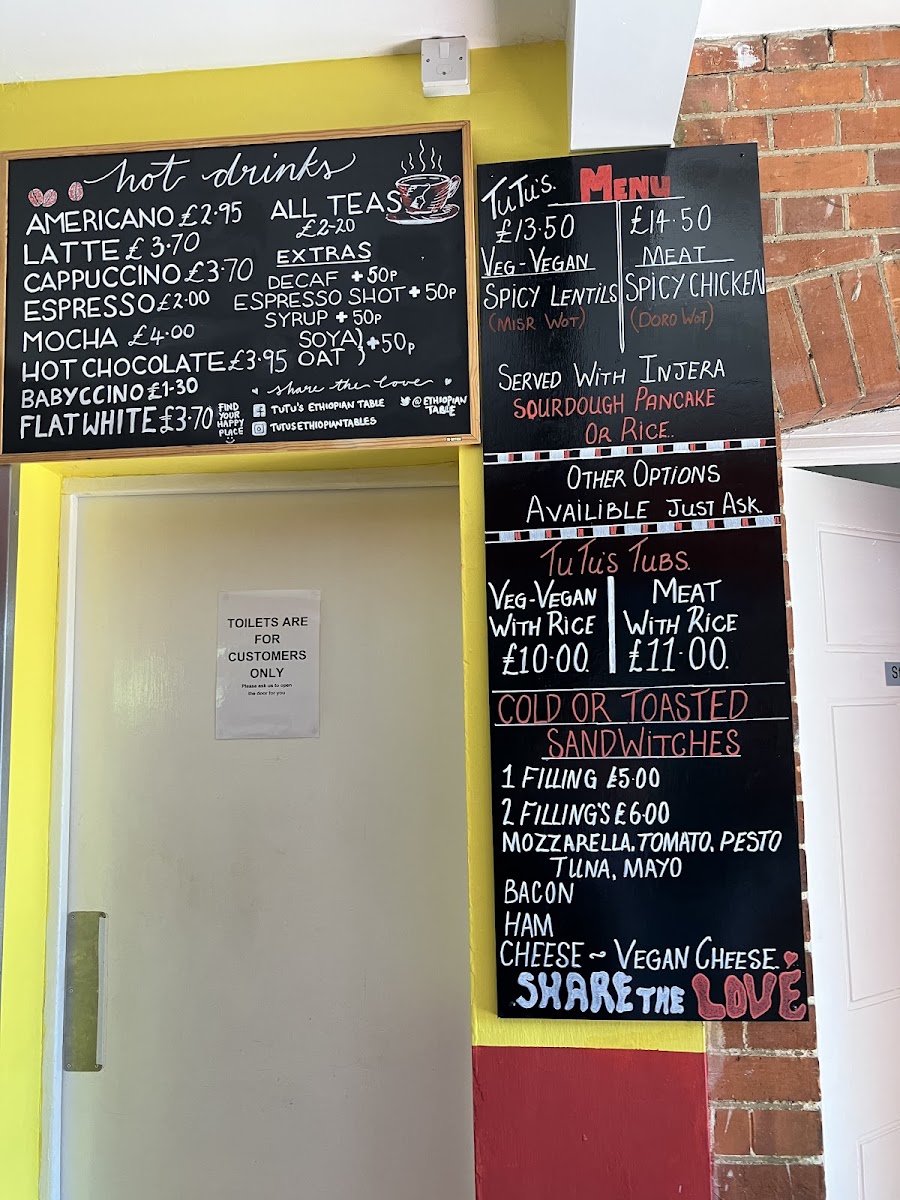 hot drinks
AMERICANO £2.95
LATTE £3.70
CAPPUCCINO £3.70
ESPRESSO £2.00
MOCHA £4.00
HOT CHOCOLATE £3.95
BABYCCINO £1-30
FLAT WHITE £3.70
FIND
YOUR
HAPPY
PLACE
ALL TEAS
£2-20
EXTRAS
DECAF +50p
ESPRESSO SHOT +50p
SYRUP +50p
SOYA
OAT } +50p
share the love
TUTU'S ETHIOPIAN TABLE
@ETHIOPIAN
TABLE
TUTUSETHIOPIANTABLES
TOILETS ARE
FOR
CUSTOMERS
ONLY
Please ask us to open
the door for you
TUTU'S. MENU
£13.50
VEG-VEGAN
SPICY LENTILS
(MISR WOT)
£14.50
MEAT
SPICY CHICKEN
(DORO WOT)
SERVED WITH INJERA
SOURDOUGH PANCAKE
OR RICE.
OTHER OPTIONS
AVAILIBLE JUST ASK.
TUTU'S TUBS.
VEG-VEGAN
WITH RICE
£10.00.
MEAT
WITH RICE
£11.00.
COLD OR TOASTED
SANDWITCHES
1 FILLING £5.00
2 FILLING'S £6.00
MOZZARELLA, TOMATO, PESTO
TUNA, MAYO
BACON
HAM
CHEESE ~ VEGAN CHEESE.
SHARE THE LOVE